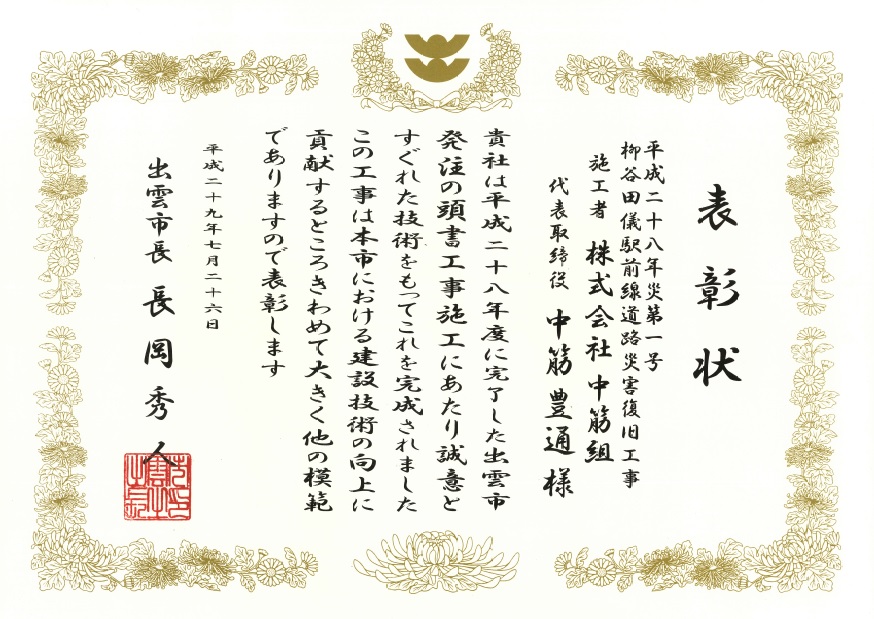 表彰状
平成二十八年災第一号
柳谷田儀駅前線道路災害復旧工事
施工者 株式会社中筋組
代表取締役 中筋豊通様
貴社は平成二十八年度に完了した出雲市
発注の頭書工事施工にあたり誠意と
すぐれた技術をもってこれを完成されました
この工事は本市における建設技術の向上に
貢献するところきわめて大きく他の模範
でありますので表彰します
平成二十九年七月二十六日
出雲市長 長岡秀人